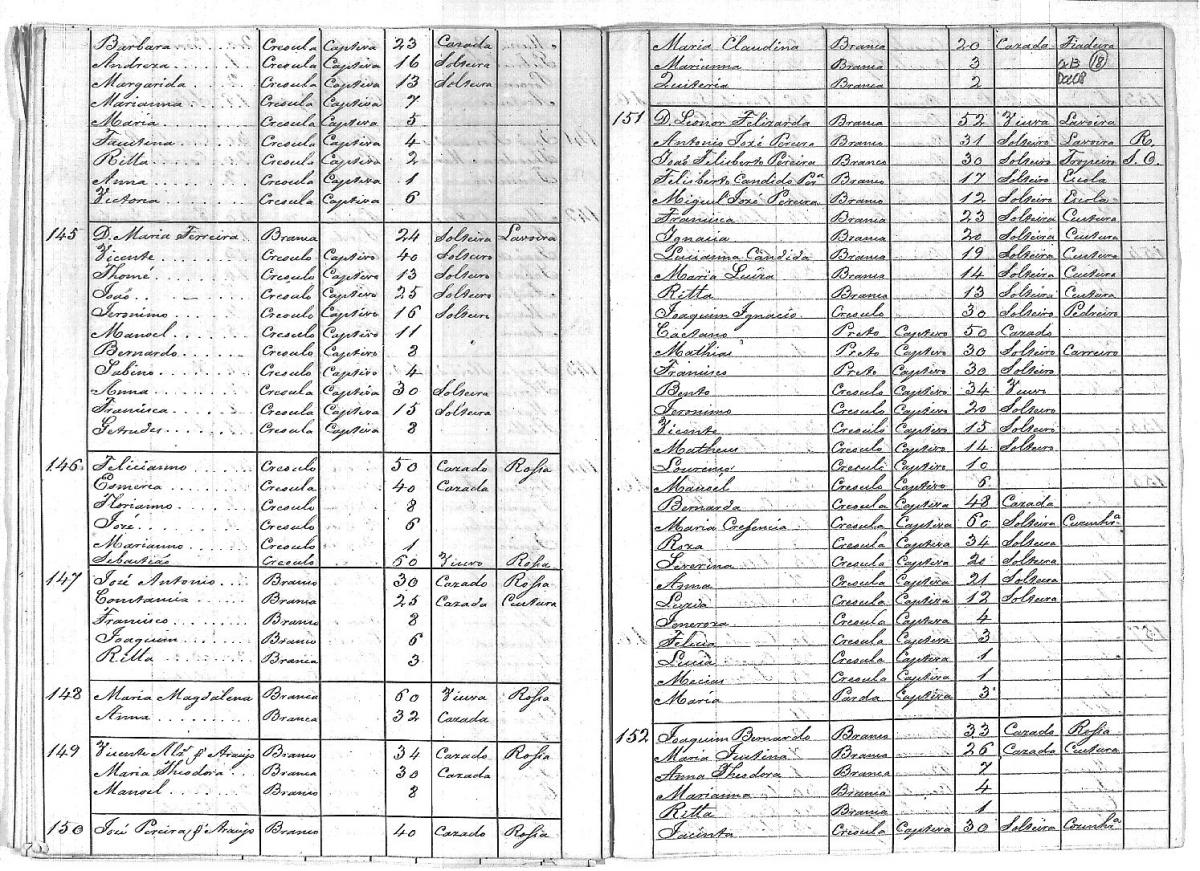 Barbara Creoula Captiva 23 Cazada
Andreza Creoula Captiva 16 Solteira
Margarida Creoula Captiva 13 Solteira
Marianna Creoula Captiva 7
Maria Creoula Captiva 5
Faustina Creoula Captiva 4
Ritta Creoula Captiva 2
Anna Creoula Captiva 1
Victoria Creoula Captiva 6
145 D. Maria Ferreira Branca 24 Solteira Lavoira
Vicente Creoulo Captivo 40 Solteiro
Thomé Creoulo Captivo 13 Solteiro
João Creoulo Captivo 25 Solteiro
Jeronimo Creoulo Captivo 16 Solteiro
Manoel Creoulo Captivo 11
Bernardo Creoulo Captivo 8
Sabino Creoulo Captivo 4
Anna Creoula Captiva 30 Solteira
Francisca Creoula Captiva 15 Solteira
Getrudes Creoula Captiva 8
146 Felicianno Creoulo 50 Cazado Rossa
Esmeria Creoula 40 Cazada
Florianno Creoulo 8
José Creoulo 6
Marianno Creoulo 1
Sebastião Creoulo 60 Viuvo Rossa
147 José Antonio Branco 30 Cazado Rossa
Constancia Branca 25 Cazada Custura
Francisco Branco 8
Joaquim Branco 6
Ritta Branca 3
148 Maria Magdalena Branca 60 Viuva Rossa
Anna Branca 32 Cazada
149 Vicente Alz' Araujo Branco 34 Cazado Rossa
Maria Theodora Branca 30 Cazada
Manoel Branco 8
150 José Pereira Araujo Branco 40 Cazado Rossa
Maria Claudina Branca 20 Cazada Fiadeira
Marianna Branca 3 2B (18)
Quiteria Branca 2
151 D. Leonor Felizarda Branca 52 Viuva Lavoira
Antonio José Pereira Branco 31 Solteiro Lavoira R.
João Filisberto Pereira Branco 30 Solteiro Tropeiro S. O.
Felisberto Candido Per.ª Branco 17 Solteiro Escola
Miguel José Pereira Branco 12 Solteiro Escola
Francisca Branca 23 Solteira Custura
Ignacia Branca 20 Solteira Custura
Lucianna Candida Branca 19 Solteira Custura
Maria Luiza Branca 14 Solteira Custura
Ritta Branca 13 Solteira Custura
Joaquim Ignacio Creoulo 30 Solteiro Pedreiro
Caetano Preto Captivo 50 Cazado
Mathias Preto Captivo 30 Solteiro Carreiro
Francisco Preto Captivo 30 Solteiro
Bento Creoulo Captivo 34 Viuvo
Jeronimo Creoulo Captivo 20 Solteiro
Vicente Creoulo Captivo 15 Solteiro
Matheus Creoulo Captivo 14 Solteiro
Lourenço Creoulo Captivo 10
Manoel Creoulo Captivo 6
Bernarda Creoula Captiva 48 Cazada
Maria Cresencia Creoula Captiva 60 Solteira Cozinhr.ª
Roza Creoula Captiva 34 Solteira
Severina Creoula Captiva 20 Solteira
Anna Creoula Captiva 21 Solteira
Luzia Creoula Captiva 12 Solteira
Generoza Creoula Captiva 4
Felicia Creoula Captiva 3
Luiza Creoula Captiva 1
Mecias Creoula Captiva 1
Maria Parda Captiva 3
152 Joaquim Bernardo Branco 33 Cazado Rossa
Maria Justina Branca 26 Cazada Custura
Anna Theodora Branca 7
Marianna Branca 4
Ritta Branca 1
Jacinta Creoula Captiva 30 Solteira Cozinhr.ª